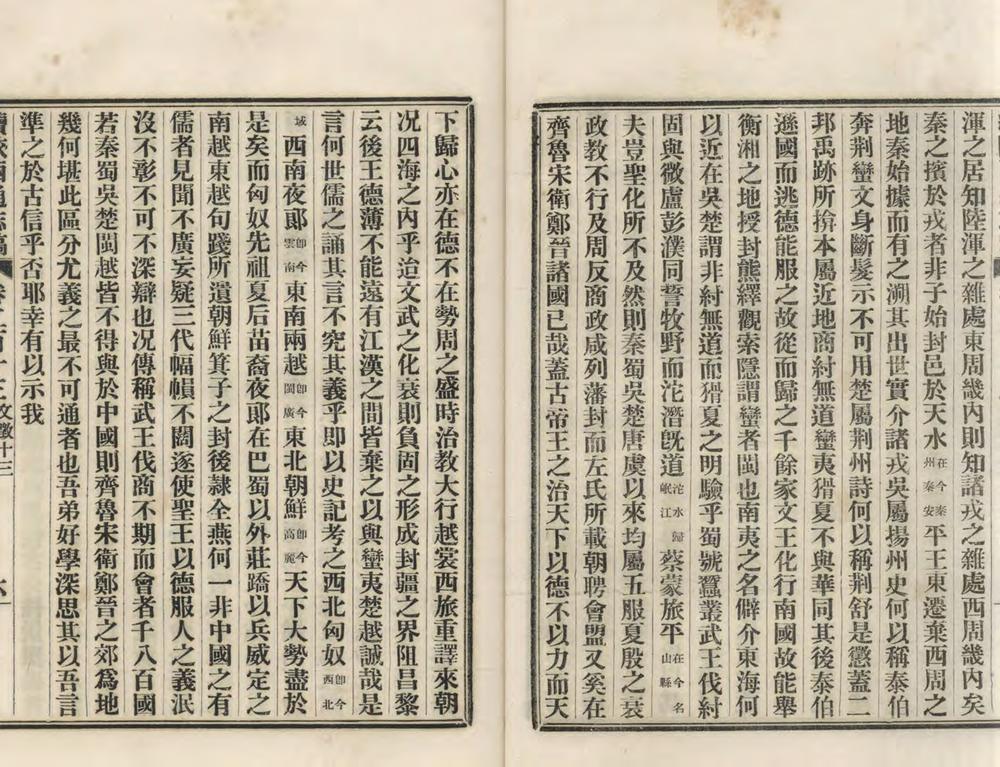 渾之居知陸渾之雜處東周畿內則知諸戎之雜處西周畿內矣
秦之擯於戎者非子始封邑於天水在今秦州秦安平王東遷棄西周之
地秦始據而有之溯其出世實介諸戎吳屬揚州史何以稱泰伯
奔荆蠻文身斷髮示不可用楚屬荆州詩何以稱荆舒是懲蓋二
邦禹跡所揜本屬近地商紂無道蠻夷猾夏不與華同其後泰伯
遜國而逃德能服之故從而歸之千餘家文王化行南國故能舉
衡湘之地授封熊繹觀索隱謂蠻者閩也南夷之名僻介東海何
以近在吳楚謂非紂無道而猾夏之明驗乎蜀號蠶叢武王伐紂
固與微盧彭濮同誓牧野而沱潛旣道沱水歸岷江蔡蒙旅平在今名山縣
夫豈聖化所不及然則秦蜀吳楚唐虞以來均屬五服夏殷之衰
政教不行及周反商政咸列藩封而左氏所載朝聘會盟又奚在
齊魯宋衛鄭晉諸國已哉蓋古帝王之治天下以德不以力而天
下歸心亦在德不在勢周之盛時治教大行越裳西旅重譯來朝
況四海之內乎迨文武之化衰則負固之形成封疆之界阻昌黎
云後王德薄不能遠有江漢之間皆棄之以與蠻夷楚越誠哉是
言何世儒之誦其言不究其義乎即以史記考之西北匈奴即今西北
域西南夜郞即今雲南東南兩越即今閩廣東北朝鮮即今高麗天下大勢盡於
是矣而匈奴先祖夏后苗裔夜郞在巴蜀以外莊蹻以兵威定之
南越東越句踐所遺朝鮮箕子之封後隸全燕何一非中國之有
儒者見聞不廣妄疑三代幅幀不闊遂使聖王以德服人之義泯
沒不彰不可不深辯也況傳稱武王伐商不期而會者千八百國
若秦蜀吳楚閩越皆不得與於中國則齊魯宋衛鄭晉之郊爲地
幾何堪此區分尤義之最不可通者也吾弟好學深思其以吾言
準之於古信乎否耶幸有以示我